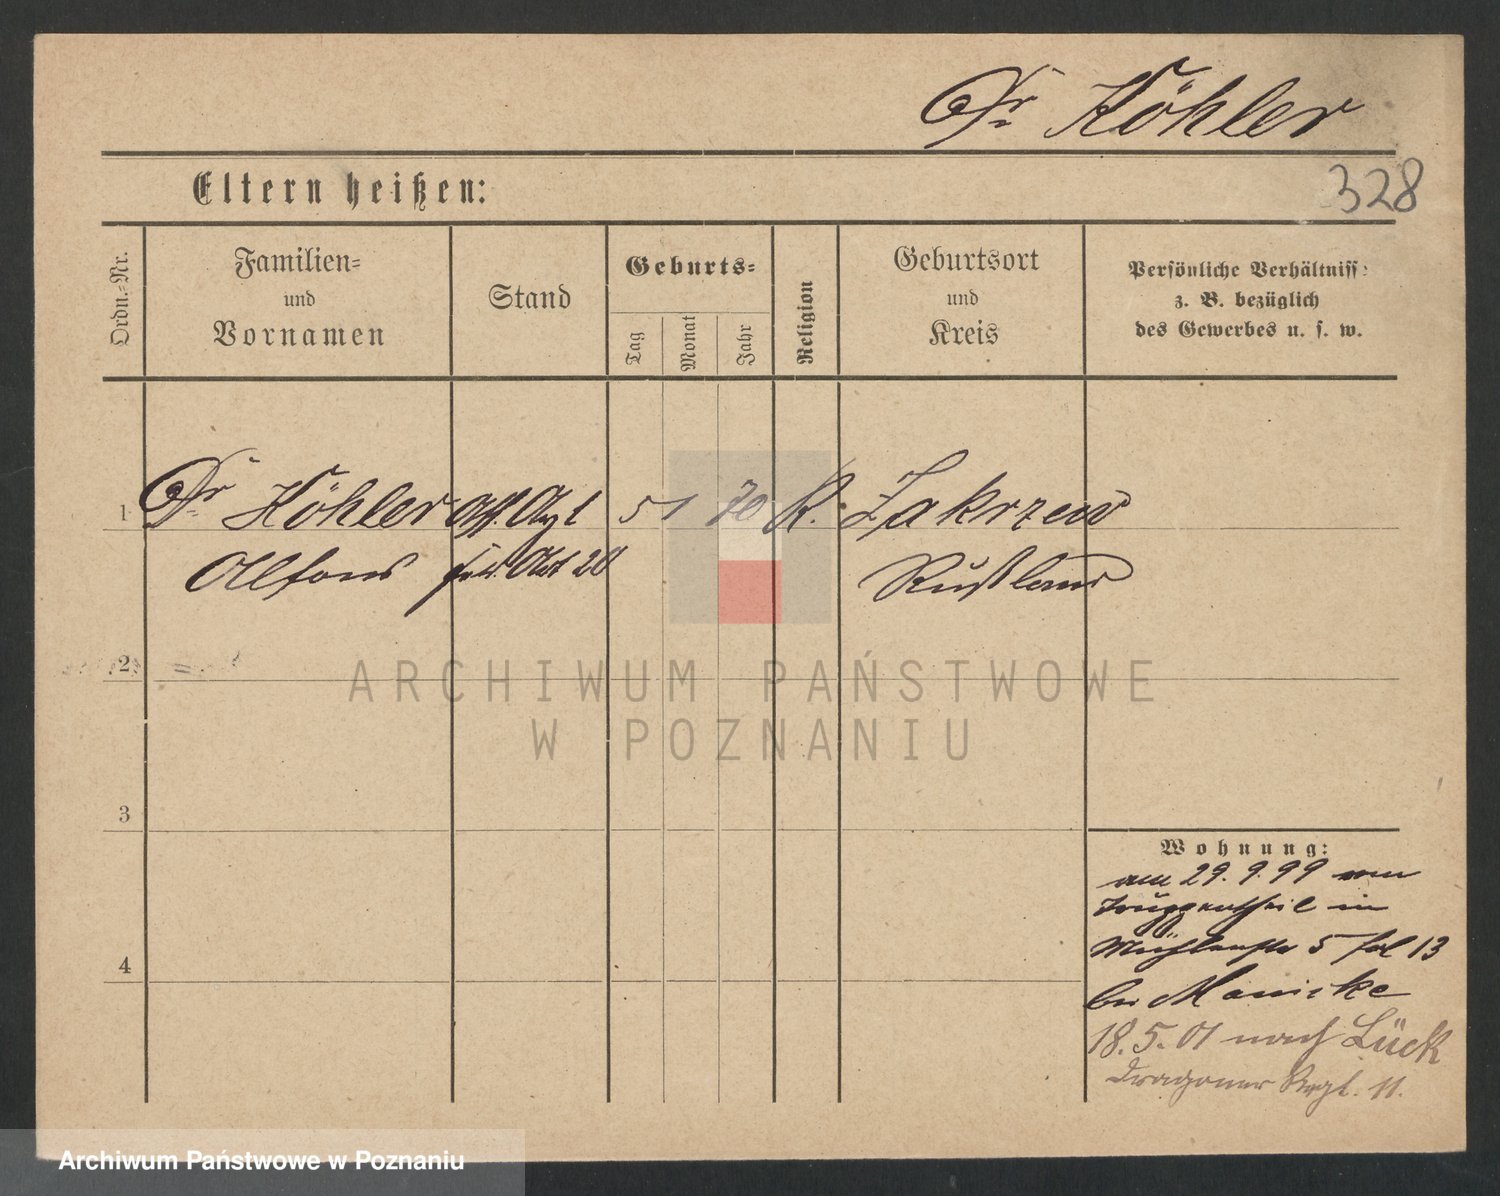 Dr Köhler
Eltern heißen:
328
Ordn.-Nr.
Familien-
und
Vornamen
Stand
Geburts-
Tag
Monat
Jahr
Religion
Geburtsort
und
Kreis
Persönliche Verhältniss:
z. B. bezüglich
des Gewerbes u. s. w.
1
Dr Köhler
Alfons
Ass. Arzt
Art 20
5 1 70
K.
Zakrzew
Rußland
2
3
4
Wohnung:
am 29.9.99 vom
Truppentheil in
Mühlenstr 5 13
bei Manicke
18.5.01 nach Lück
Dragoner Regt. 11.
ARCHIWUM PAŃSTWOWE
W POZNANIU
Archiwum Państwowe w Poznaniu